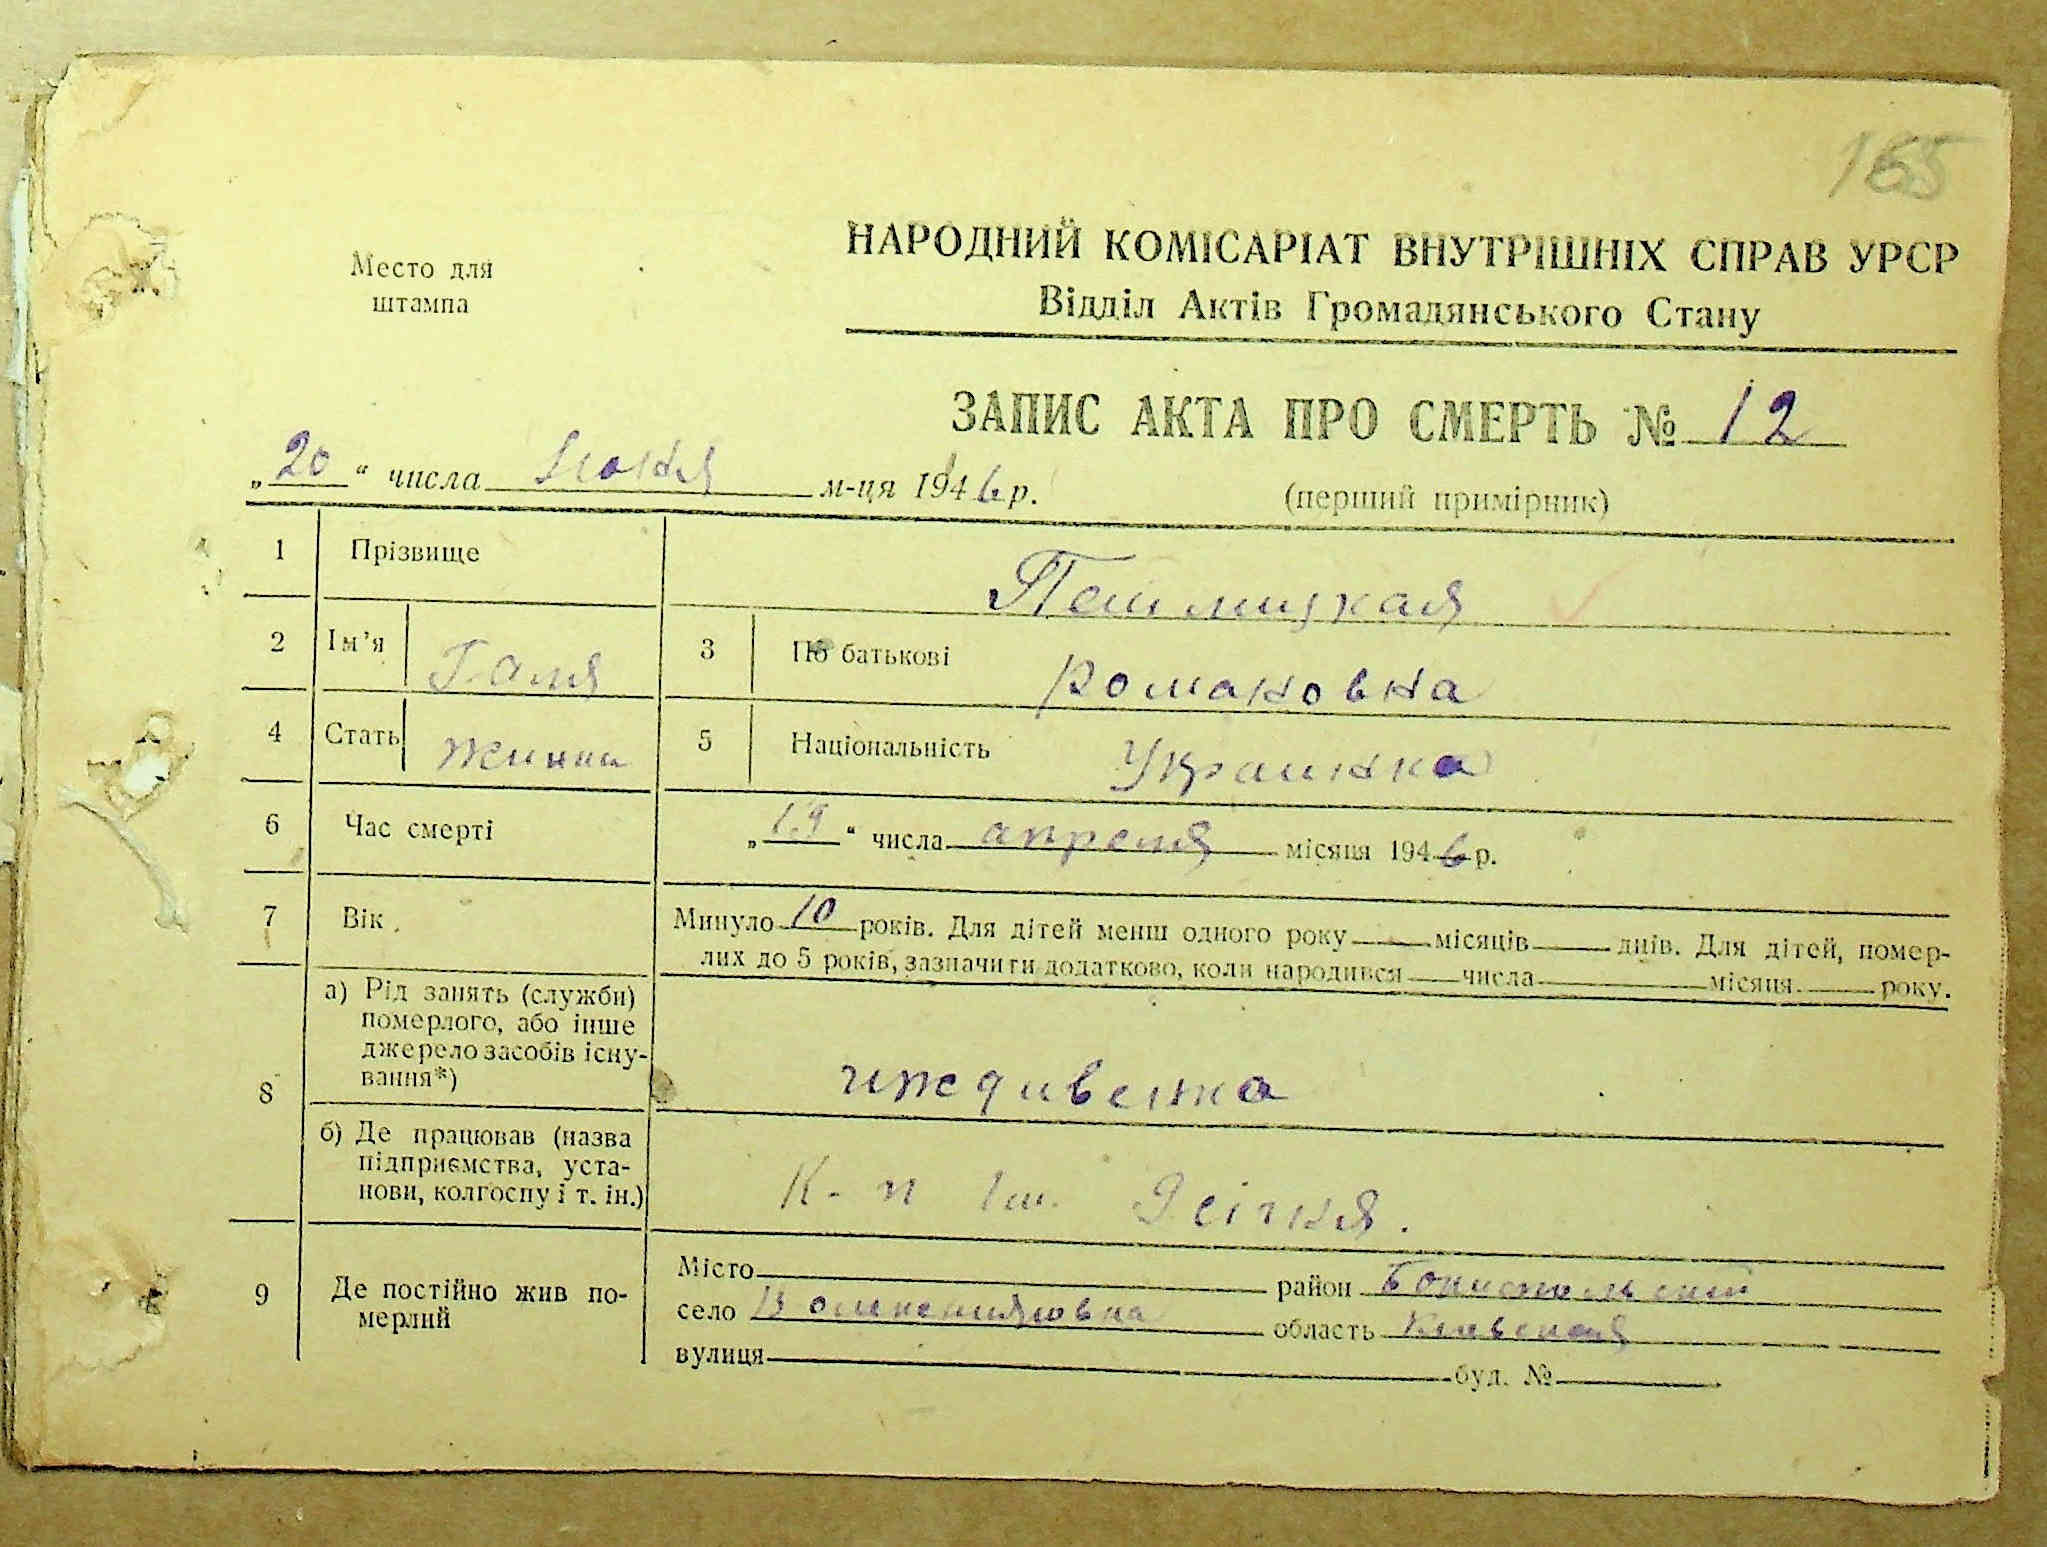 165
Место для
штампа
НАРОДНИЙ КОМІСАРІАТ ВНУТРІШНІХ СПРАВ УРСР
Відділ Актів Громадянського Стану
ЗАПИС АКТА ПРО СМЕРТЬ № 12
„20“ числа Июня м-ця 1946 р.
(перший примірник)
1 Прізвище
2 Ім’я Галя 3 По батькові Романовна
4 Стать 5 Національність Украинка
6 Час смерті „19“ числа апреля місяця 1946 р.
7 Вік Минуло 10 років. Для дітей менш одного року місяців днів. Для дітей, помер-
лих до 5 років, зазначити додатково, коли народився числа місяця року.
8 а) Рід занять (служби)
померлого, або інше
джерело засобів існу-
вання*)
б) Де працював (назва
підприємства, уста-
нови, колгоспу і т. ін.)
К-п
9 Де постійно жив по-
мерлий
Місто район Бориспольский
село область Киевская
вулиця буд. №